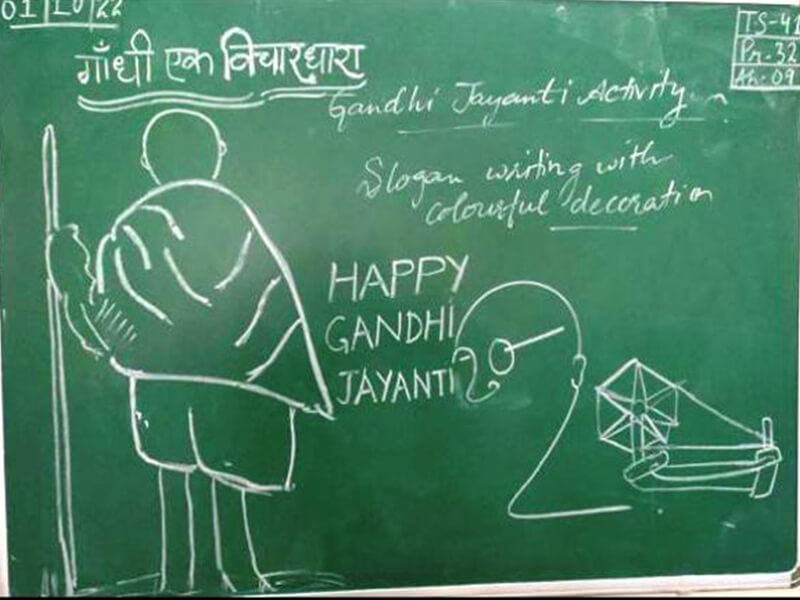 01/10/22
TS-41
Pr.-32
Ab.-09
गाँधी एक विचारधारा
Gandhi Jayanti Activity
Slogan writing with
colourful decoration
HAPPY
GANDHI
JAYANTI